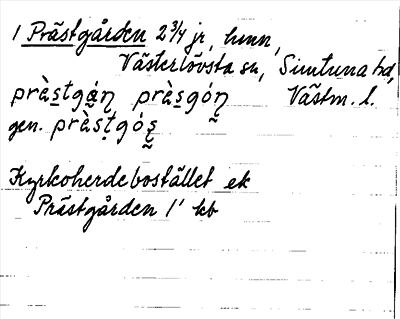 1 Prästgården 2 3/4 jr, hmn,
Västerlövsta sn, Simtuna hd,
Västm. l.
gen.
Kyrkoherdebostället ek
Prästgården 1' kb